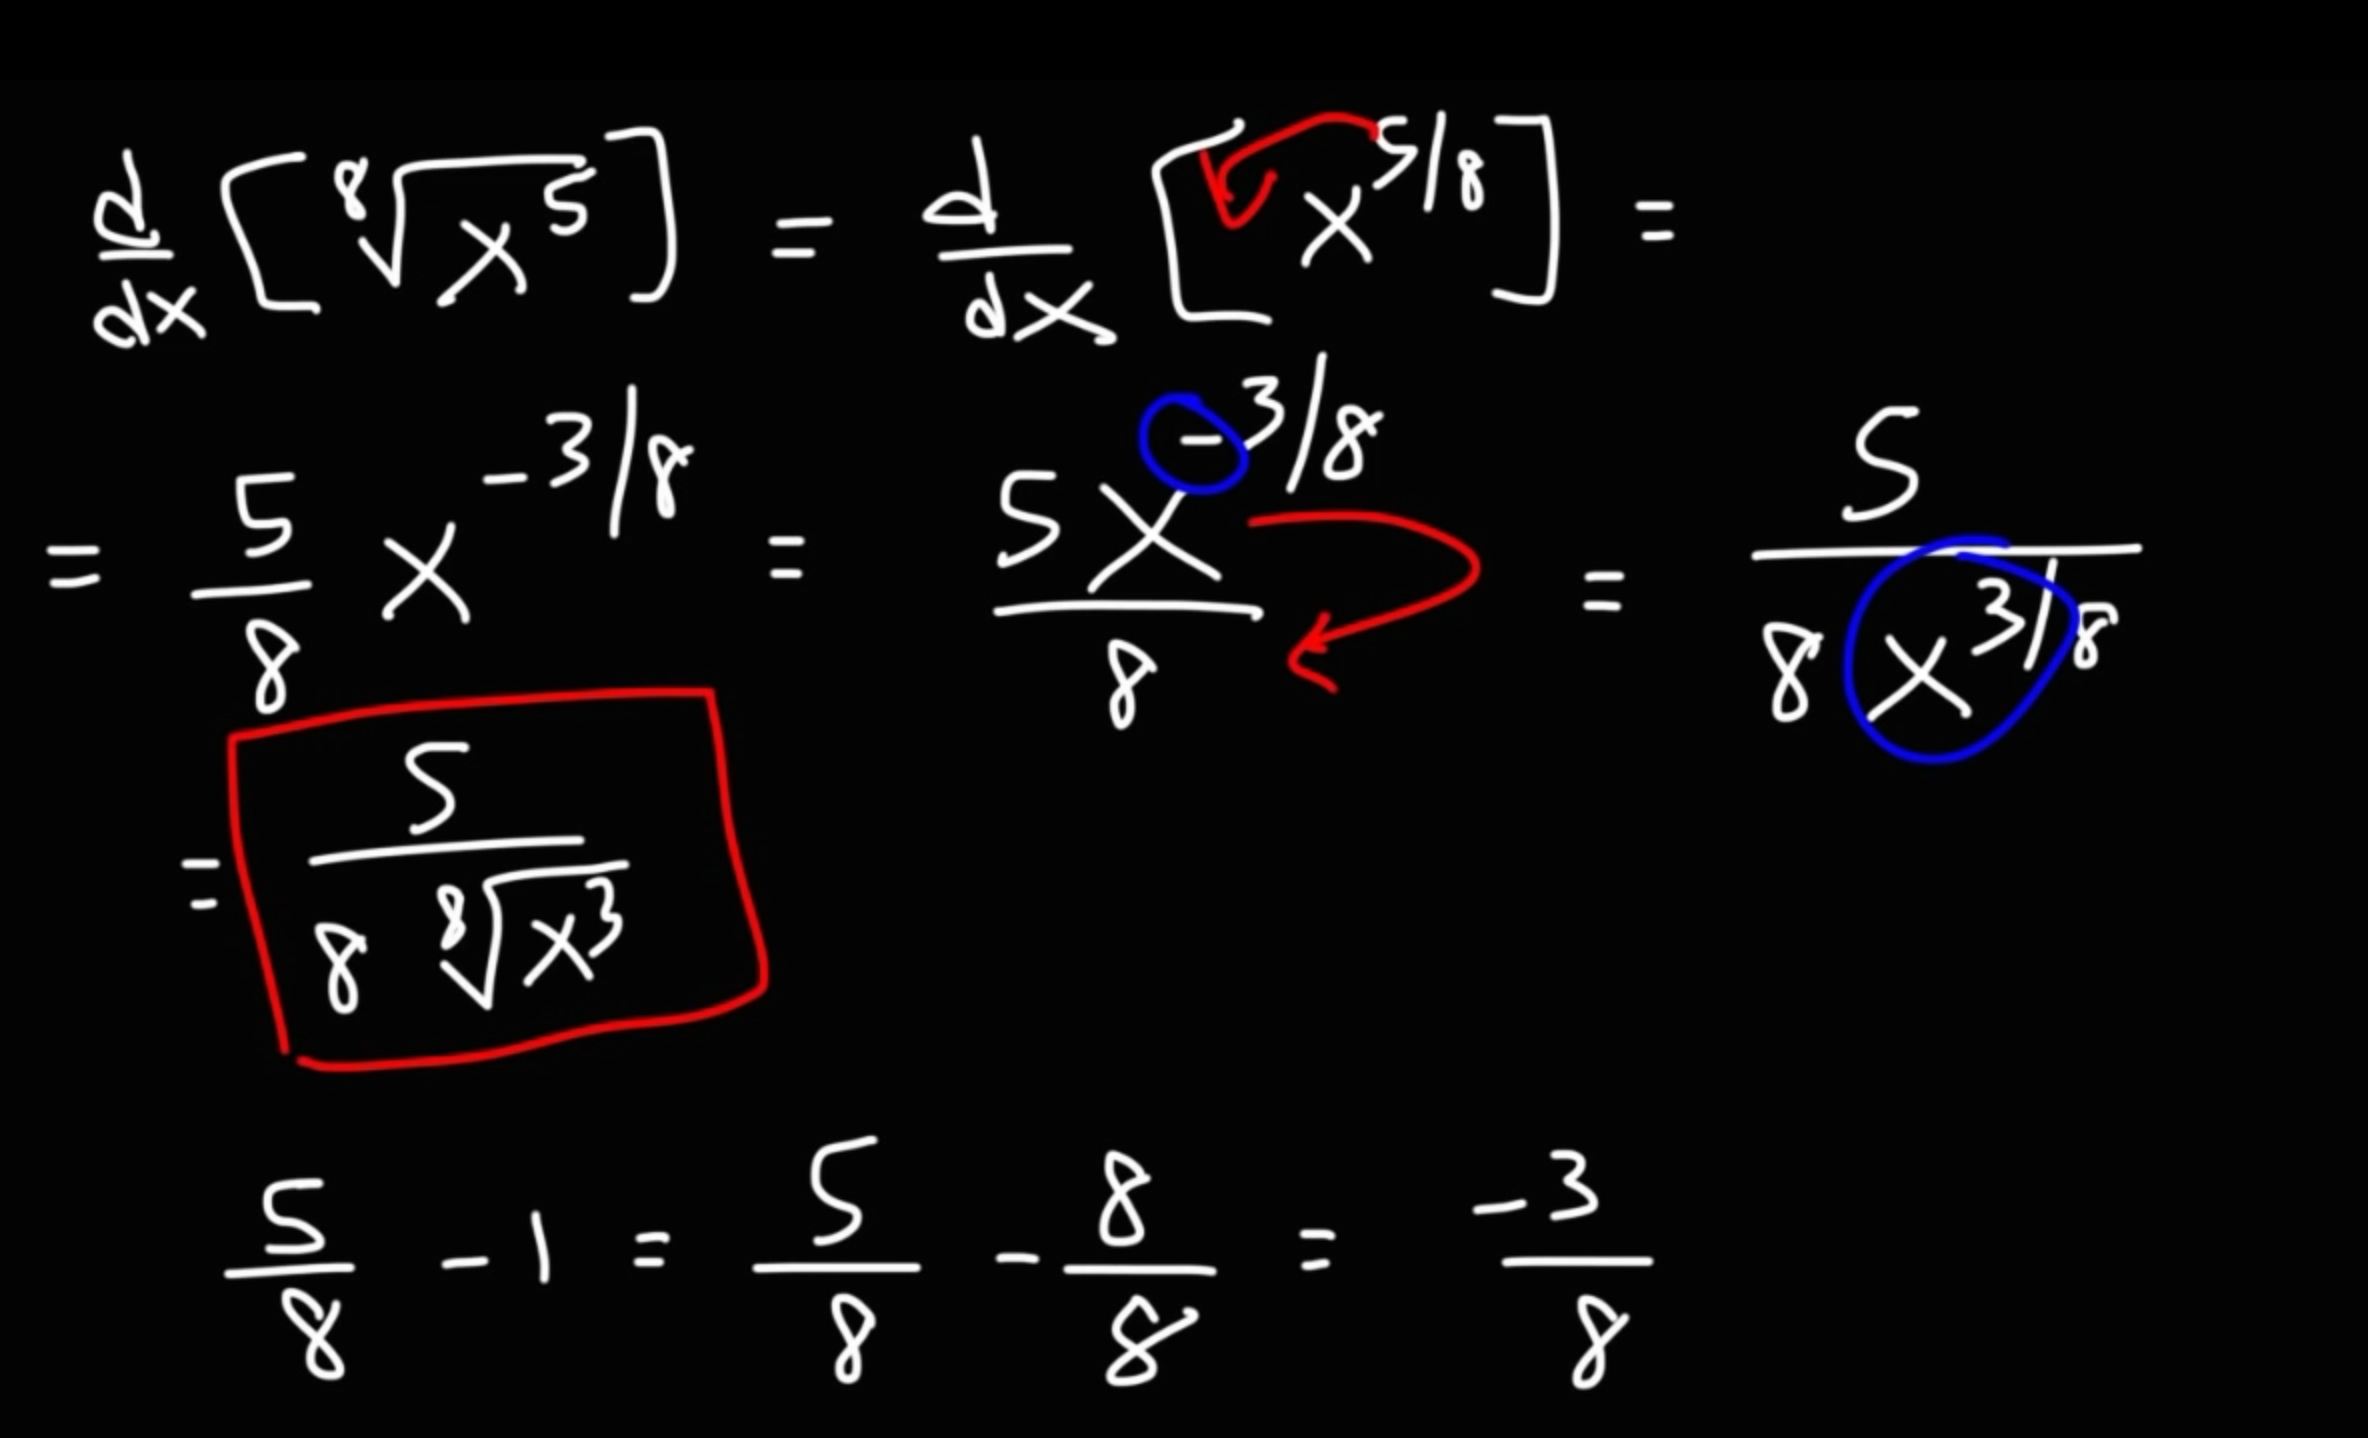 d/dx [⁸√x⁵] = d/dx [x^5/8] =
= 5/8 x^-3/8 = 5x^-3/8 / 8 = 5 / 8x^3/8
= 5 / 8 ⁸√x³
5/8 - 1 = 5/8 - 8/8 = -3/8